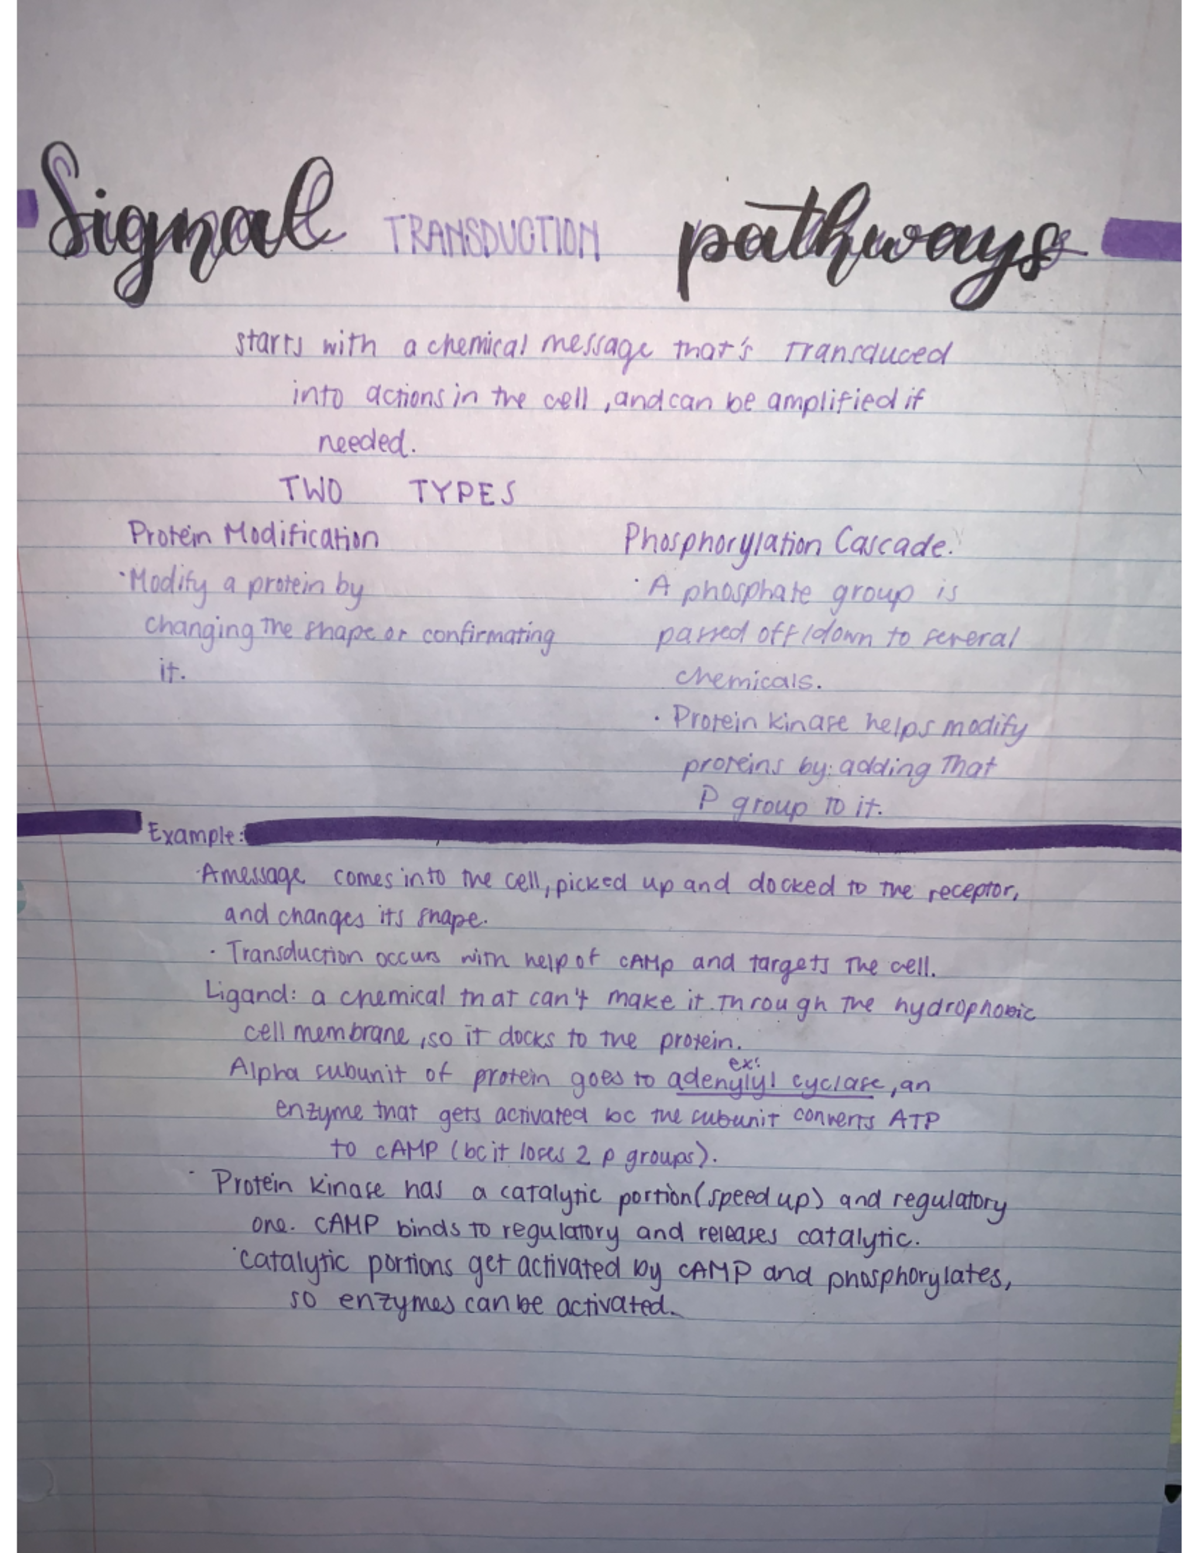 Signal TRANSDUCTION pathways
starts with a chemical message that's transduced
into actions in the cell, and can be amplified if
needed.
TWO TYPES
Protein Modification
· Modify a protein by
changing the shape or confirmating
it.
Phosphorylation Cascade.
· A phosphate group is
passed off/down to several
chemicals.
· Protein kinase helps modify
proteins by: adding that
P group to it.
Example:
· A message comes into the cell, picked up and docked to the receptor,
and changes its shape.
· Transduction occurs with help of cAMp and targets the cell.
Ligand: a chemical that can't make it through the hydrophobic
cell membrane, so it docks to the protein.
ex:
Alpha subunit of protein goes to adenylyl cyclase, an
enzyme that gets activated bc the subunit converts ATP
to cAMP (bc it loses 2 p groups).
· Protein kinase has a catalytic portion (speed up) and regulatory
one. cAMP binds to regulatory and releases catalytic.
· catalytic portions get activated by cAMP and phosphorylates,
so enzymes can be activated.